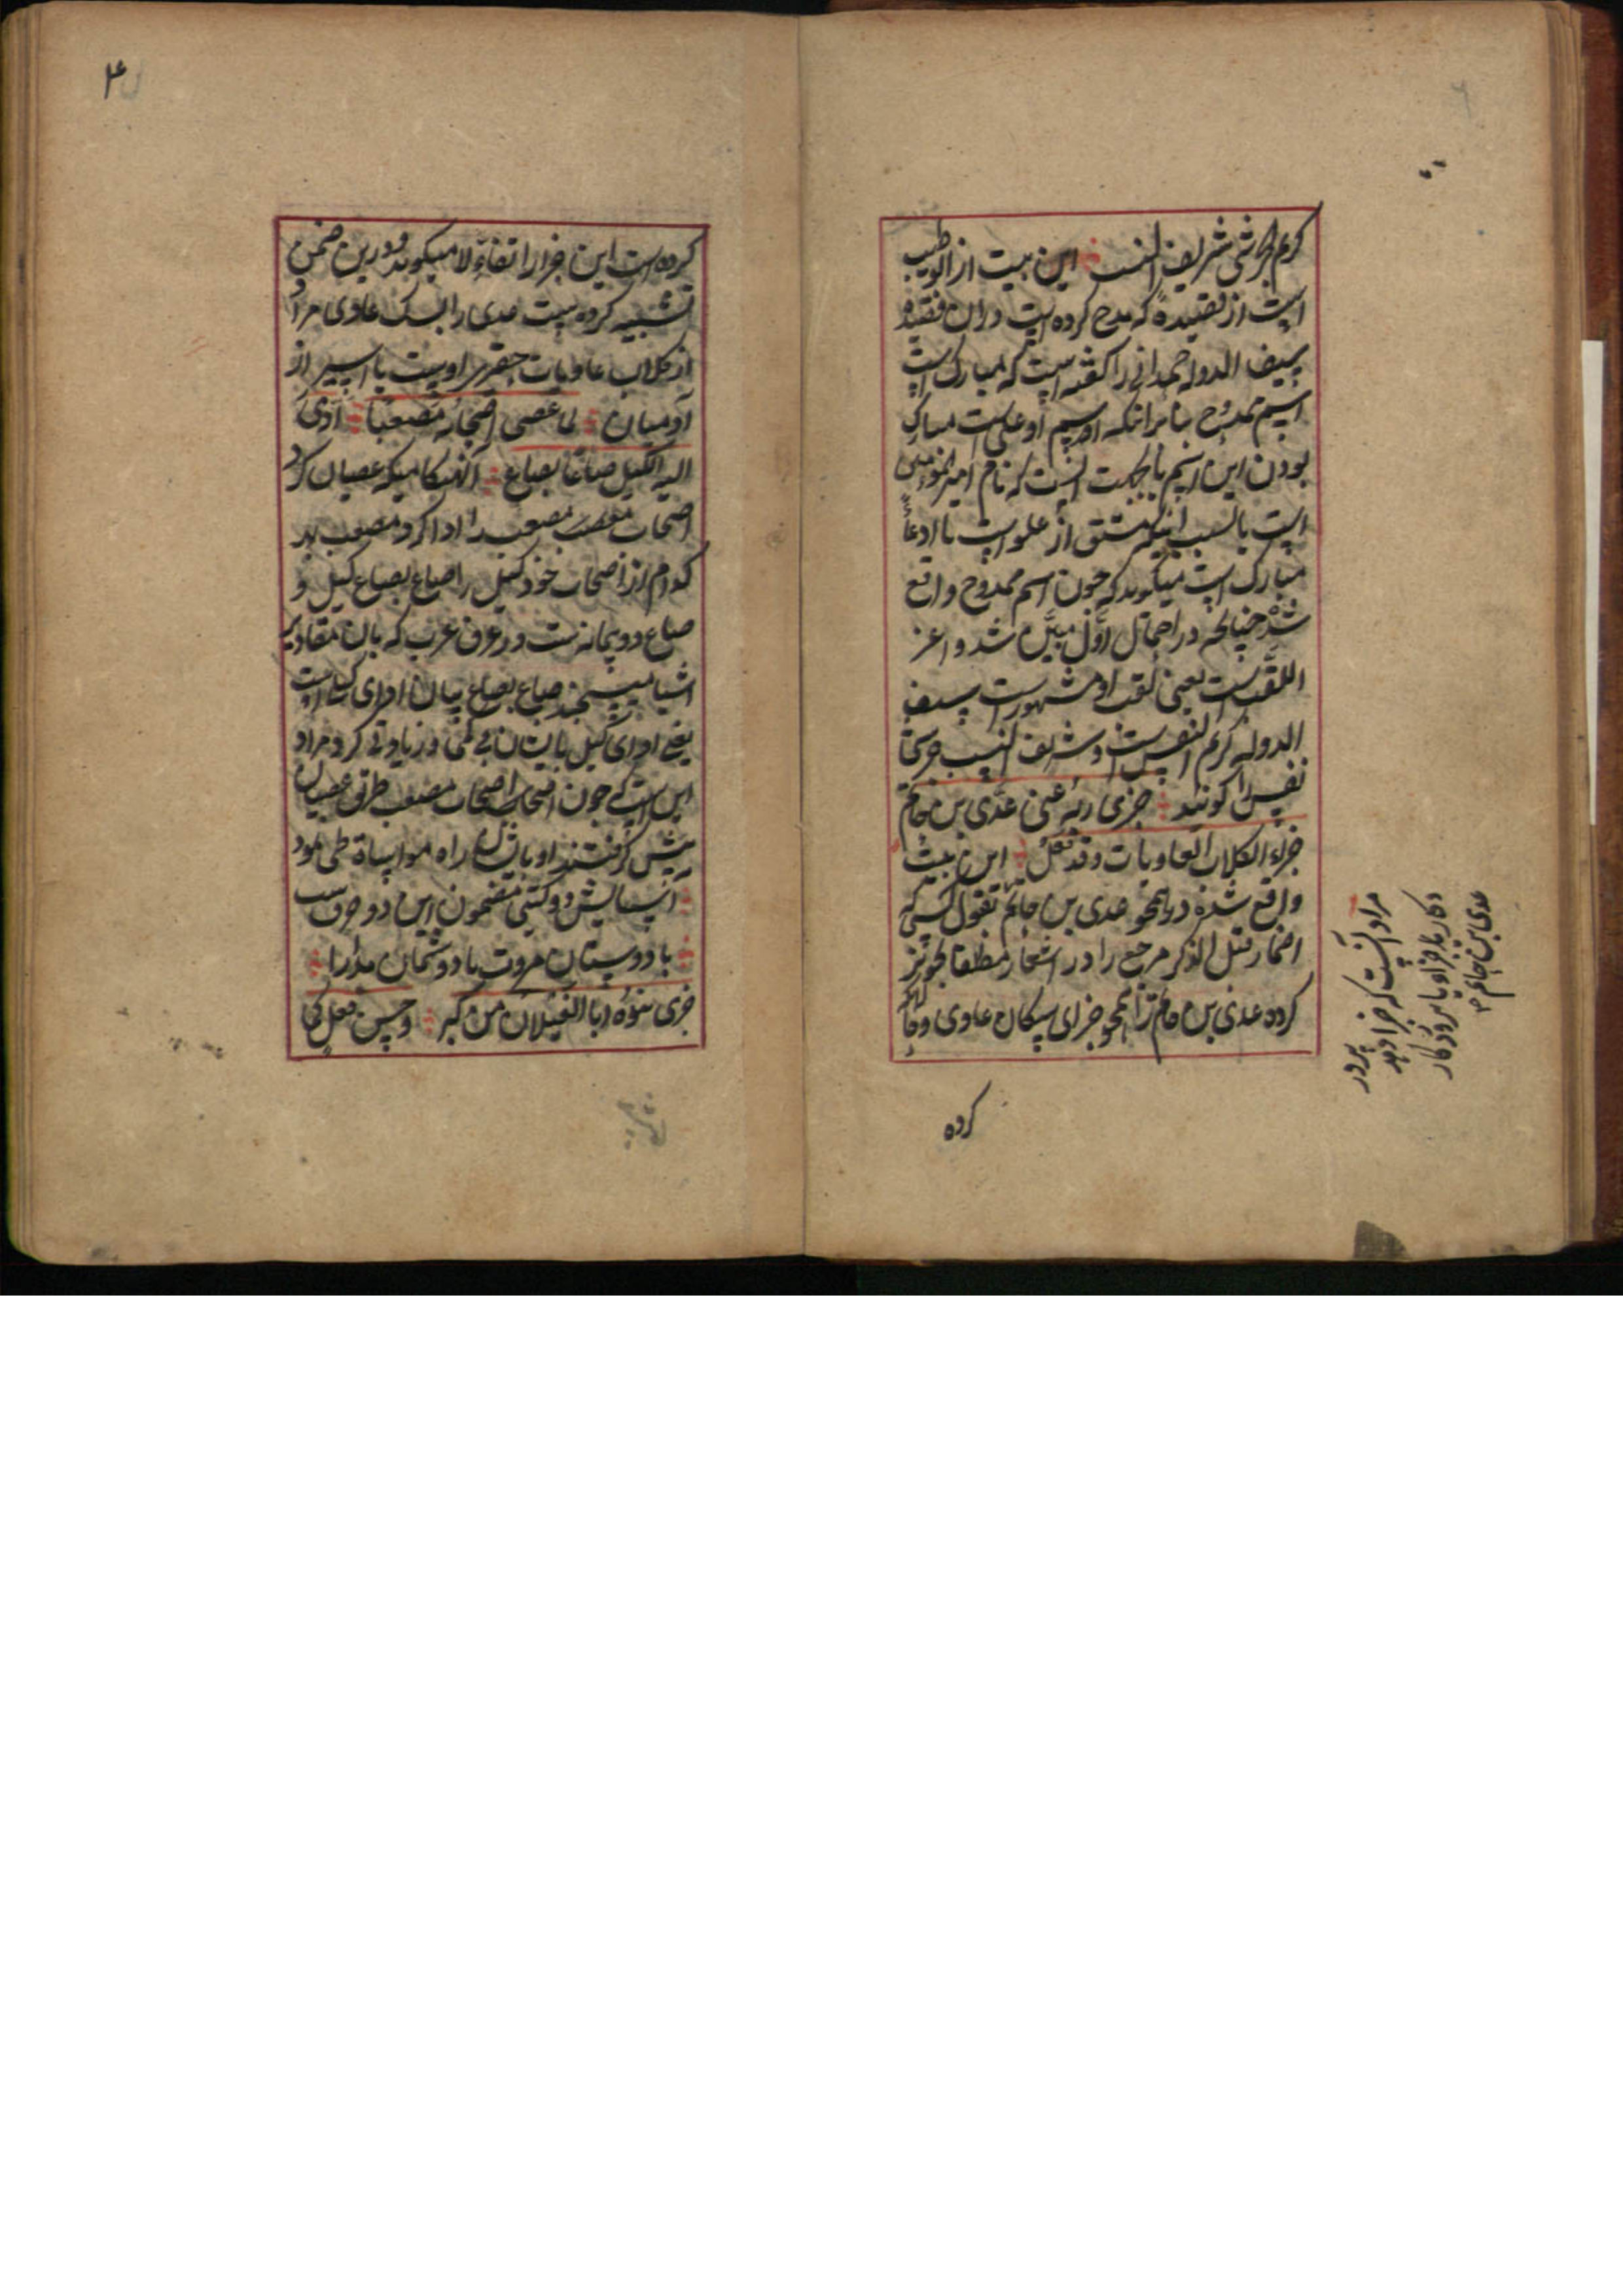 کرم الجرشی شریف النسب این بیت از ابو الطیب
است از قصیدهٔ که مدح کرده است دران قصیده
سیف الدوله حمدانی را گفته است که مبارک است
اسم ممدوح بنابرانکه اسم او علی است مبارک
بودن این اسم باعتبار انست که نام امیرالمومنین
است یا بسبب اینکه مشتق از علو است یا ادعاءً
مبارک است میگوید که چون اسم ممدوح واقع
شد چنانچه در احتمال اول مبین شد و اغر
اللقب است یعنی لقب او مشهور است سیف
الدوله کریم النفس است و شریف النسب جرشی
نفس را گویند جزی ربه عنی عدی بن حاتم
جزاء الکلاب العاویات وقد فعل این بیت
واقع شده در هجو عدی بن حاتم بقول کسی که
اضمار قبل الذکر مرجع را در اشعار مطلقا تجویز
کرده عدی بن حاتم را جزای سگان عاوی و
کرده
مراد آنست که جزا دهد پرور
دکار باو جزا و یا پرورد کار
عدی بن حاتم ۱۲
۴
کرده است این جزا را تفاءلا میگوید و درین ضمن
تشبیه کرده است عدی را بسگ عاوی مراد
از کلاب عاویات حقیر اوست یا اسیر از
آدمیان لما عصی اصحابه مصعبا ادی
الیه الکیل صاعا بصاع آنهنکامیکه عصیان کرد
اصحاب مصعب مصعب را ادا کرد مصعب بهر
کدام از اصحاب خود کیل را صاع بصاع کیل و
صاع دو پیمانه است در عرف عرب که بان مقادیر
اشیا میسنجند صاع بصاع بیان ادای کیل است
یعنی ادای کیل بایشان بی کمی و زیادتی کرد مراد
این است که چون اصحاب اصحاب مصعب طریق عصیان
پیش گرفتند او باایشان راه مواساة طی نمود
آسایش دو گیتی مضمون این دو حرف است
با دوستان مروت با دشمنان مدارا
جزی بنوه ابا الغیلان من کبر وحسن فعل کما